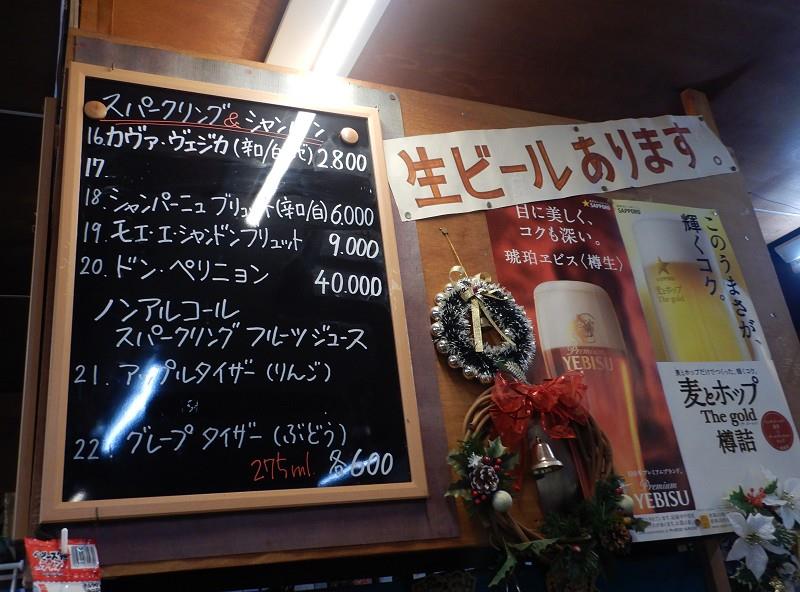 スパークリング & シャンパン
16. カヴァ・ヴェジカ (辛口/白/泡) 2.800
17
18. シャンパーニュ ブリュット (辛口/白) 6.000
19. モエ・エ・シャンドン ブリュット 9.000
20. ドン・ペリニョン 40.000
ノンアルコール
スパークリング フルーツ ジュース
21. アップルタイザー (りんご)
22. グレープ タイザー (ぶどう)
275ml. 各600
生ビールあります。
SAPPORO
目に美しく、
コクも深い。
琥珀ヱビス〈樽生〉
Premium
YEBISU
Premium
YEBISU
SAPPORO
このうまさが、
輝くコク。
麦とホップ
The gold
麦とホップだけでつくった、輝くコク。
麦とホップ
The gold
樽詰